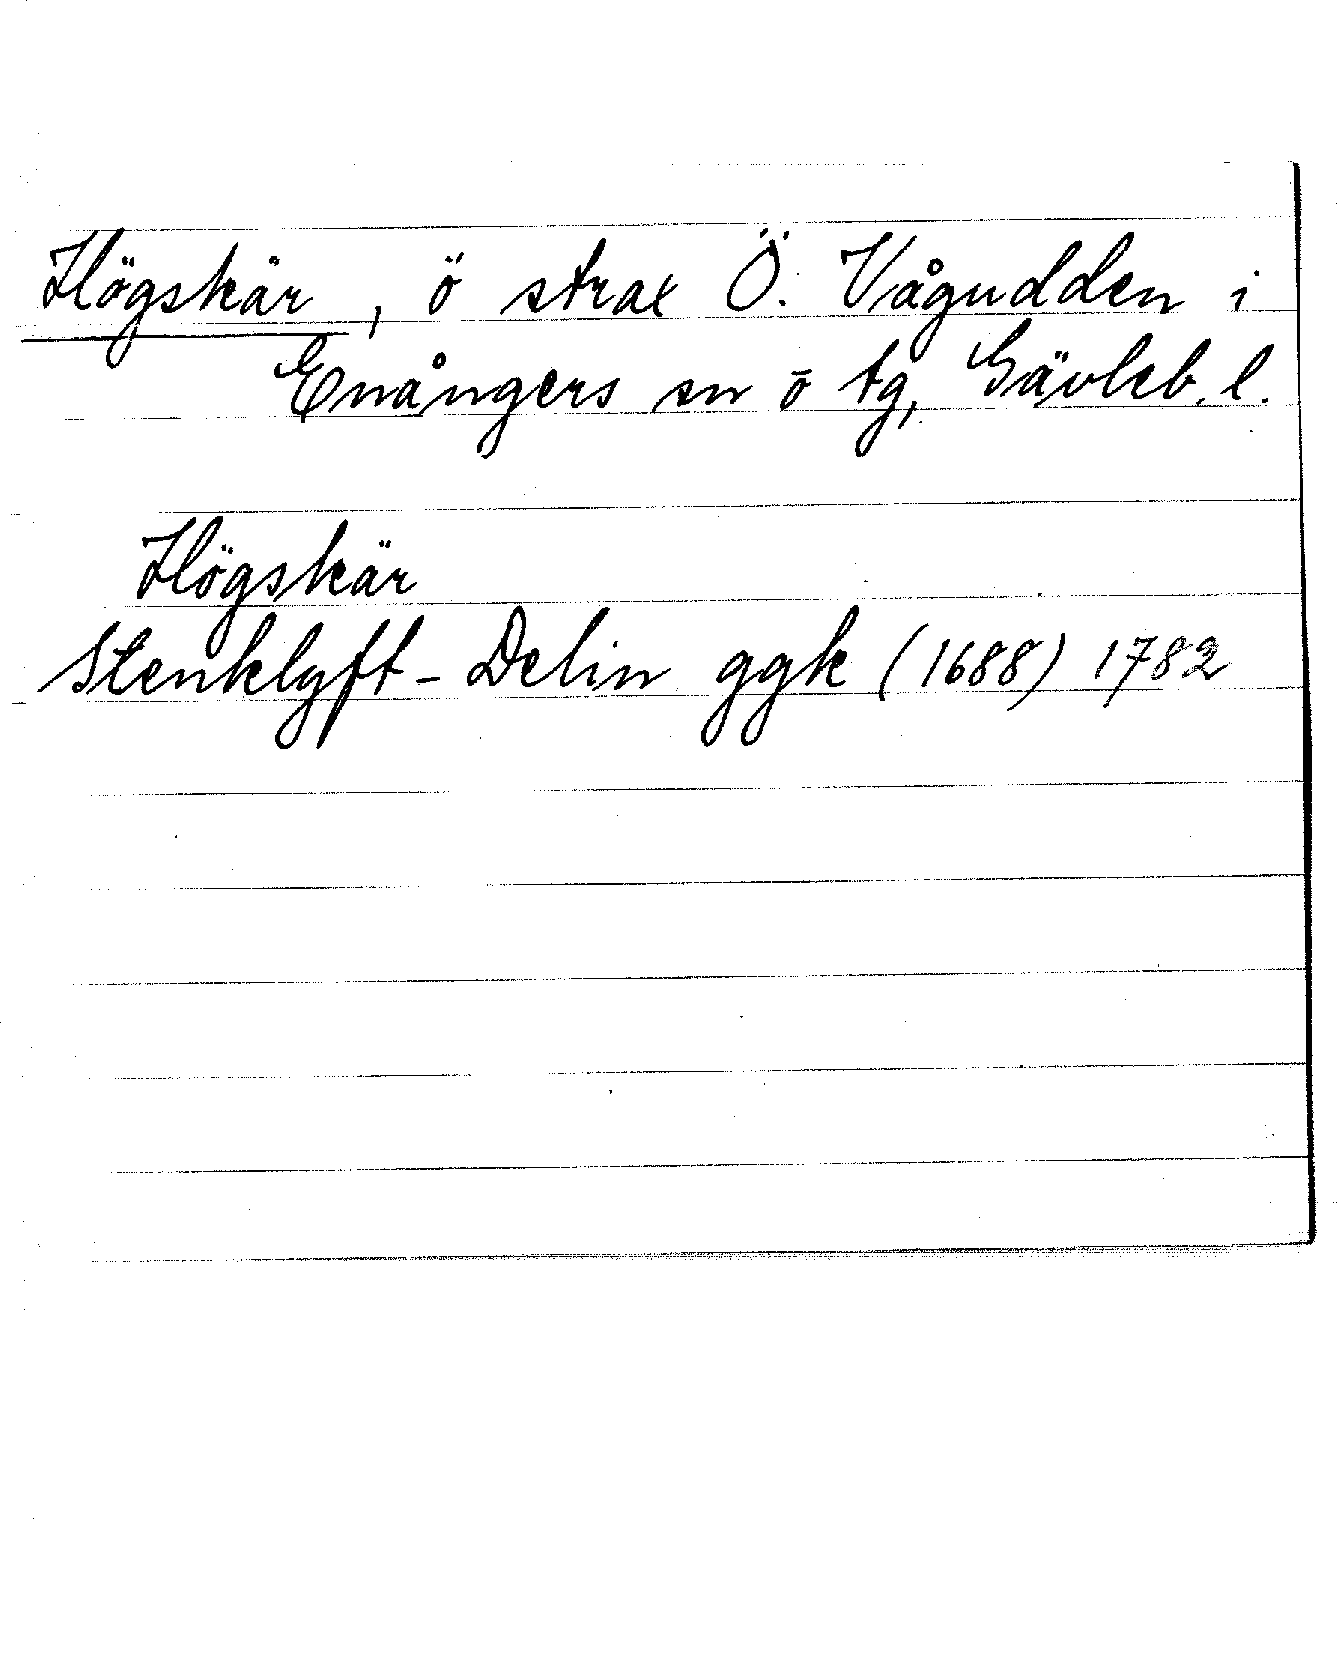 Högskär, ö strax Ö. Vågudden i
Enångers sn o tg, Gävleb. l.
Högskär
Stenklyft - Delin ggk (1688) 1782